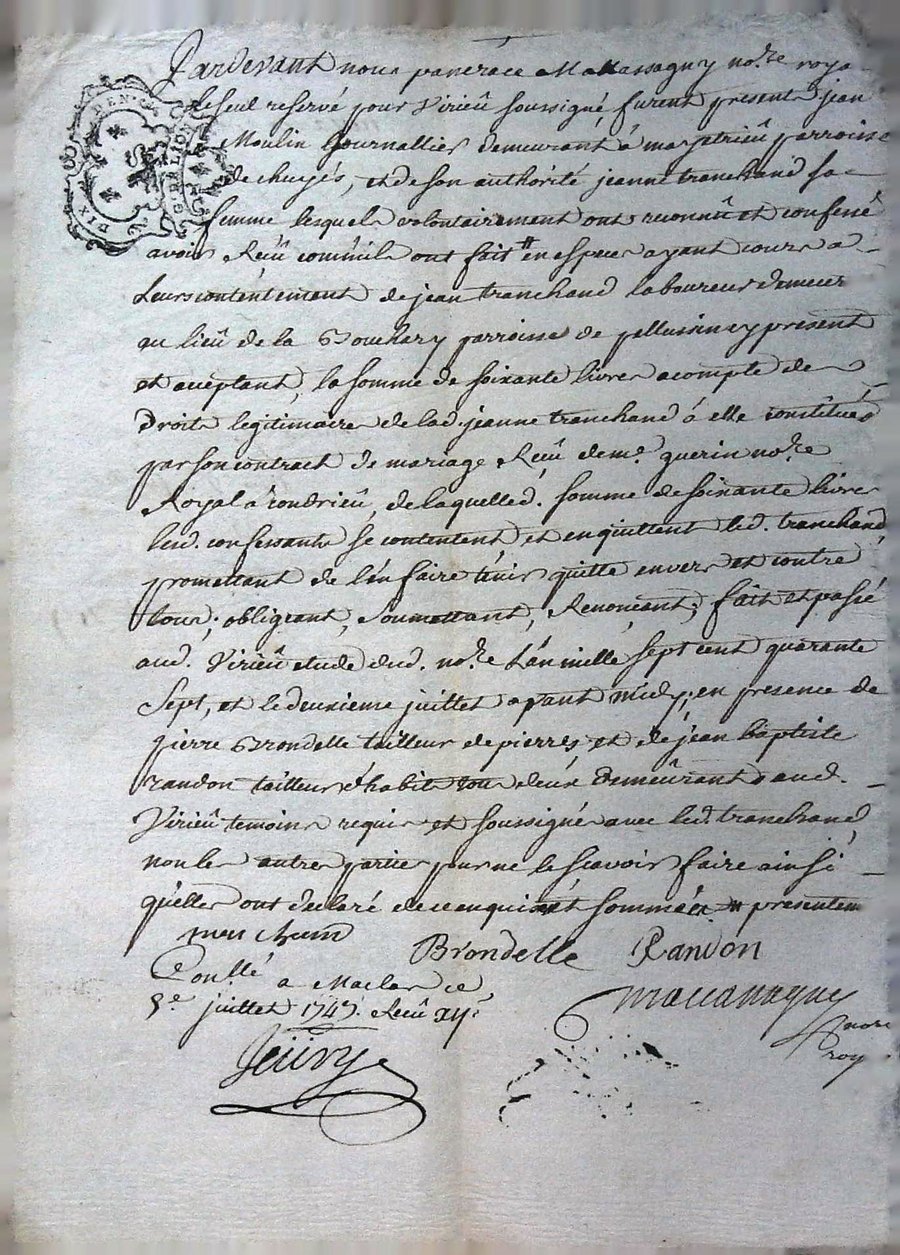 Pardevant nous pancrace Massassagny no.re roya
le seul reservé pour Virieû soussigné, furent present jean
Moulin Journallier demeurant á parroisse
de chuyés, et de son authorité jeanne tranchand sa
femme lesquels volontairement ont reconnû et confessé
avoir Reçû comm'ils ont fait en especes ayant cours a
Leurs contentement de jean tranchand laboureur demeur
au lieû de la Bouchary parroisse de pellussin cy present
et acceptant, la somme de soixante livres acompte des
Droits legitimaires de lad. jeanne tranchand á elle constitués
par son contract de mariage Reçû de m.e guerin no.re
Royal a Condrieû, de laquelle d. somme de soixante livres
lesd. confessants sé contentent et en quittent led. tranchand
promettant de l'en faire tenir quitte envers et contre
tous; obligeant, soumettant, Renonceant; fait et passé
aud. Virieû etude dud. no.re L'an mille sept cent quarante
Sept, et le deuxieme juillet apant midy; en presence de
pierre Brondelle tailleur de pierres, et de jean baptiste
randon tailleur d'habits tous deux demeûrant aud.
Virieû temoins requis et soussignés avec led. tranchand,
non les autres parties pour ne le scavoir faire ainsi
qu'elles ont declaré de ce enquis et sommés presentem
Brondelle Randon
Con.llé a Maclas ce
5.e juillet 1747. Reçû
no.re
roy
DIX DEN.
G.RALION